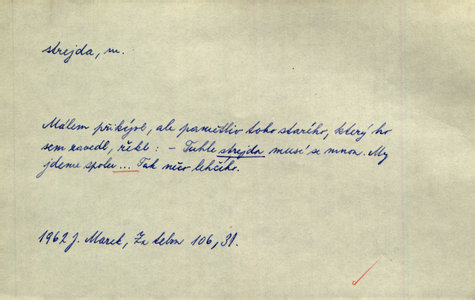 strejda, m.
Málem přikývl, ale pamětliv toho starého, který ho
sem zavedl, řekl: – Tuhle strejda musí se mnou. My
jdeme spolu ... Tak něco lehčího.
1962 J. Marek, Za tebou 106, 31.